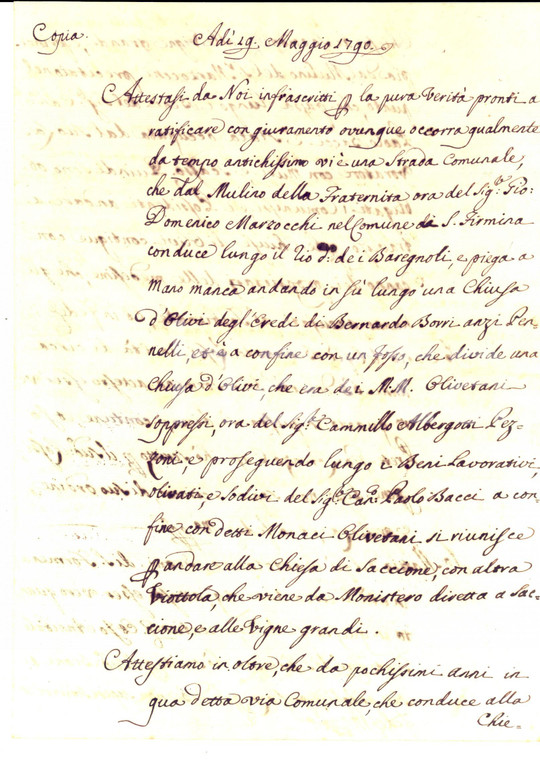 Copia.
Adì 19. Maggio 1790.
Attestasi da Noi infrascritti p la pura verità pronti a
ratificare con giuramento ovunque occorra qualmente
da tempo antichissimo vi è una Strada Comunale,
che dal Mulino della Fraternita ora del Sig.r Gio:
Domenico Marzocchi nel Comune di S. Firmina
conduce lungo il Rio d.o dei Baregnoli, e piega a
mano manca andando in sù lungo una Chiusa
d'Olivi degl'Eredi di Bernardo Borri anzi Pen=
nelli, et è a confine con un fosso, che divide una
Chiusa d'Olivi, che era dei M.M. Olivetani
soppressi, ora del Sig.r Cammillo Albergotti Pez=
zoni e proseguendo lungo i Beni Lavorativi,
olivati, e sodivi del Sig.r Can.o Paolo Bacci a con=
fine con detti Monaci Olivetani si riunisce
p andare alla Chiesa di Saccione, con altra
Viottola, che viene da Monistero diretta a Sac=
cione, e alle Vigne grandi.
Attestiamo in oltre, che da pochissimi anni in
qua detta via Comunale, che conduce alla
Chie=